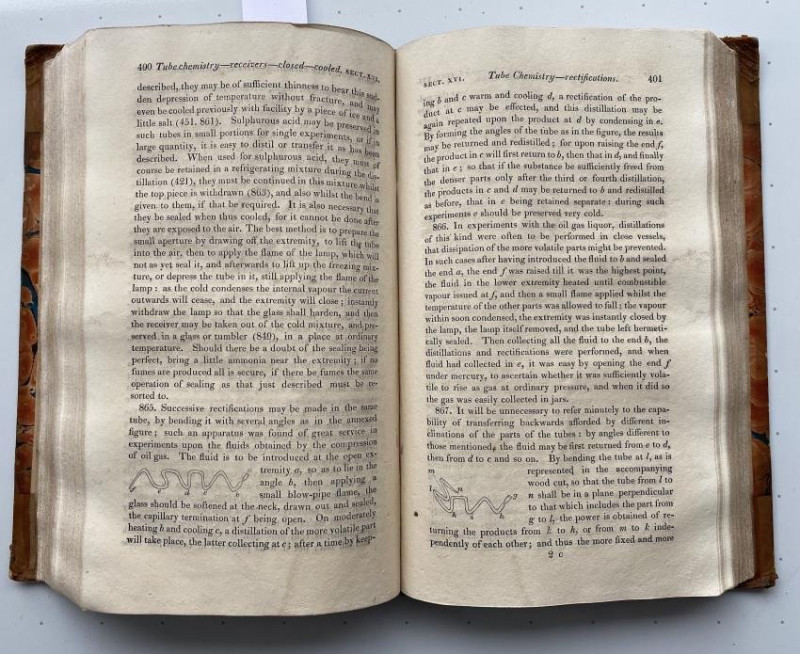 400 Tube chemistry—receivers—closed—cooled. SECT. XVI.
described, they may be of sufficient thinness to bear this sud-
den depression of temperature without fracture, and may
even be cooled previously with facility by a piece of ice and a
little salt (451. 861). Sulphurous acid may be preserved in
such tubes in small portions for single experiments, or if in
large quantity, it is easy to distil or transfer it as has been
described. When used for sulphurous acid, they must of
course be retained in a refrigerating mixture during the dis-
tillation (421), they must be continued in this mixture whilst
the top piece is withdrawn (863), and also whilst the bend is
given to them, if that be required. It is also necessary that
they be sealed when thus cooled, for it cannot be done after
they are exposed to the air. The best method is to prepare the
small aperture by drawing off the extremity, to lift the tube
into the air, then to apply the flame of the lamp, which will
not as yet seal it, and afterwards to lift up the freezing mix-
ture, or depress the tube in it, still applying the flame of the
lamp: as the cold condenses the internal vapour the current
outwards will cease, and the extremity will close; instantly
withdraw the lamp so that the glass shall harden, and then
the receiver may be taken out of the cold mixture, and pre-
served in a glass or tumbler (849), in a place at ordinary
temperature. Should there be a doubt of the sealing being
perfect, bring a little ammonia near the extremity; if no
fumes are produced all is secure, if there be fumes the same
operation of sealing as that just described must be re-
sorted to.
865. Successive rectifications may be made in the same
tube, by bending it with several angles as in the annexed
figure; such an apparatus was found of great service in
experiments upon the fluids obtained by the compression
of oil gas. The fluid is to be introduced at the open ex-
tremity a, so as to lie in the
angle b, then applying a
small blow-pipe flame, the
glass should be softened at the neck, drawn out and sealed,
the capillary termination at f being open. On moderately
heating b and cooling c, a distillation of the more volatile part
will take place, the latter collecting at c; after a time by keep-
SECT. XVI. Tube Chemistry—rectifications. 401
ing b and c warm and cooling d, a rectification of the pro-
duct at c may be effected, and this distillation may be
again repeated upon the product at d by condensing in e.
By forming the angles of the tube as in the figure, the results
may be returned and redistilled; for upon raising the end f,
the product in c will first return to b, then that in d, and finally
that in e; so that if the substance be sufficiently freed from
the denser parts only after the third or fourth distillation,
the products in c and d may be returned to b and redistilled
as before, that in e being retained separate: during such
experiments e should be preserved very cold.
866. In experiments with the oil gas liquor, distillations
of this kind were often to be performed in close vessels,
that dissipation of the more volatile parts might be prevented.
In such cases after having introduced the fluid to b and sealed
the end a, the end f was raised till it was the highest point,
the fluid in the lower extremity heated until combustible
vapour issued at f, and then a small flame applied whilst the
temperature of the other parts was allowed to fall: the vapour
within soon condensed, the extremity was instantly closed by
the lamp, the lamp itself removed, and the tube left hermeti-
cally sealed. Then collecting all the fluid to the end b, the
distillations and rectifications were performed, and when
fluid had collected in e, it was easy by opening the end f
under mercury, to ascertain whether it was sufficiently vola-
tile to rise as gas at ordinary pressure, and when it did so
the gas was easily collected in jars.
867. It will be unnecessary to refer minutely to the capa-
bility of transferring backwards afforded by different in-
clinations of the parts of the tubes: by angles different to
those mentioned, the fluid may be first returned from e to d,
then from d to c and so on. By bending the tube at l, as is
m
represented in the accompanying
wood cut, so that the tube from l to
n shall be in a plane perpendicular
to that which includes the part from
g to l, the power is obtained of re-
turning the products from k to h, or from m to k inde-
pendently of each other; and thus the more fixed and more
2 C